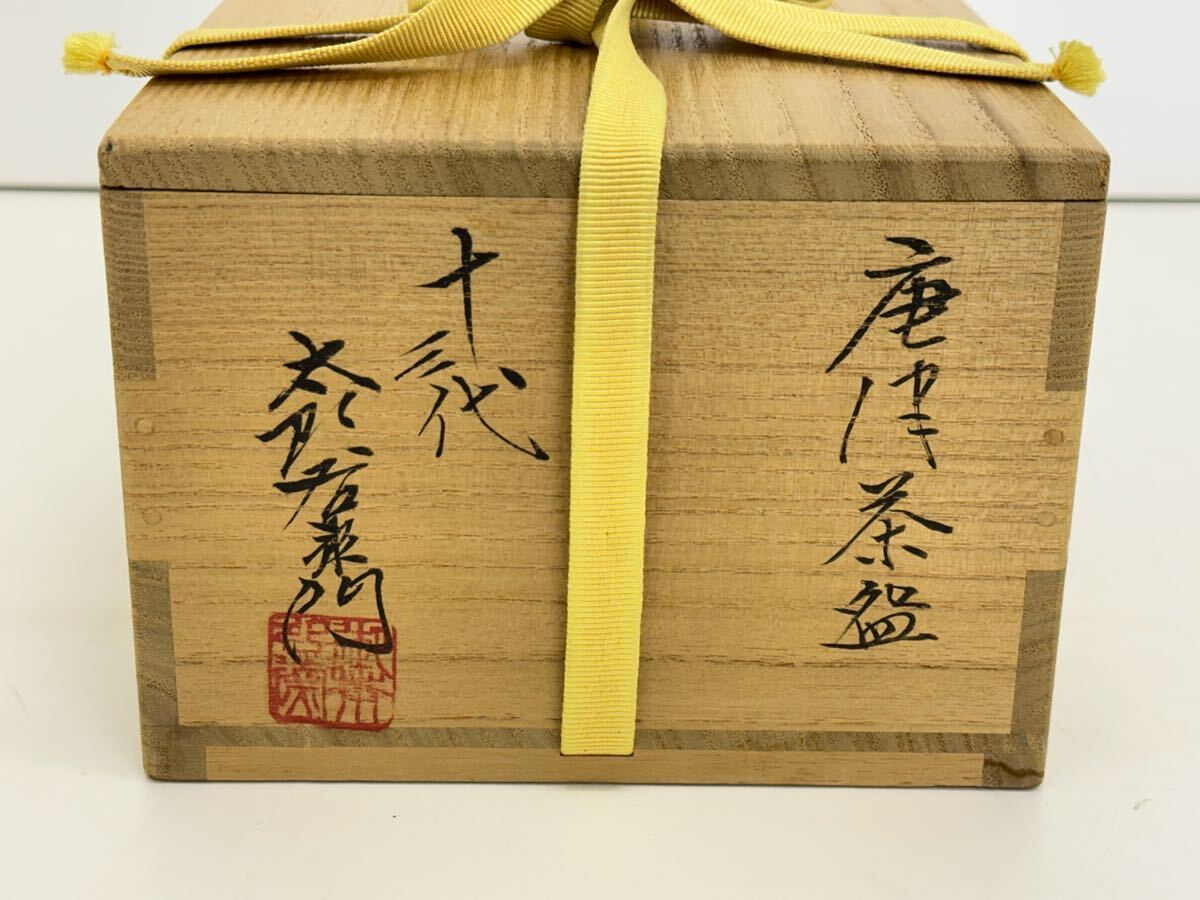 唐津茶盌
十三代
太郎右衛門